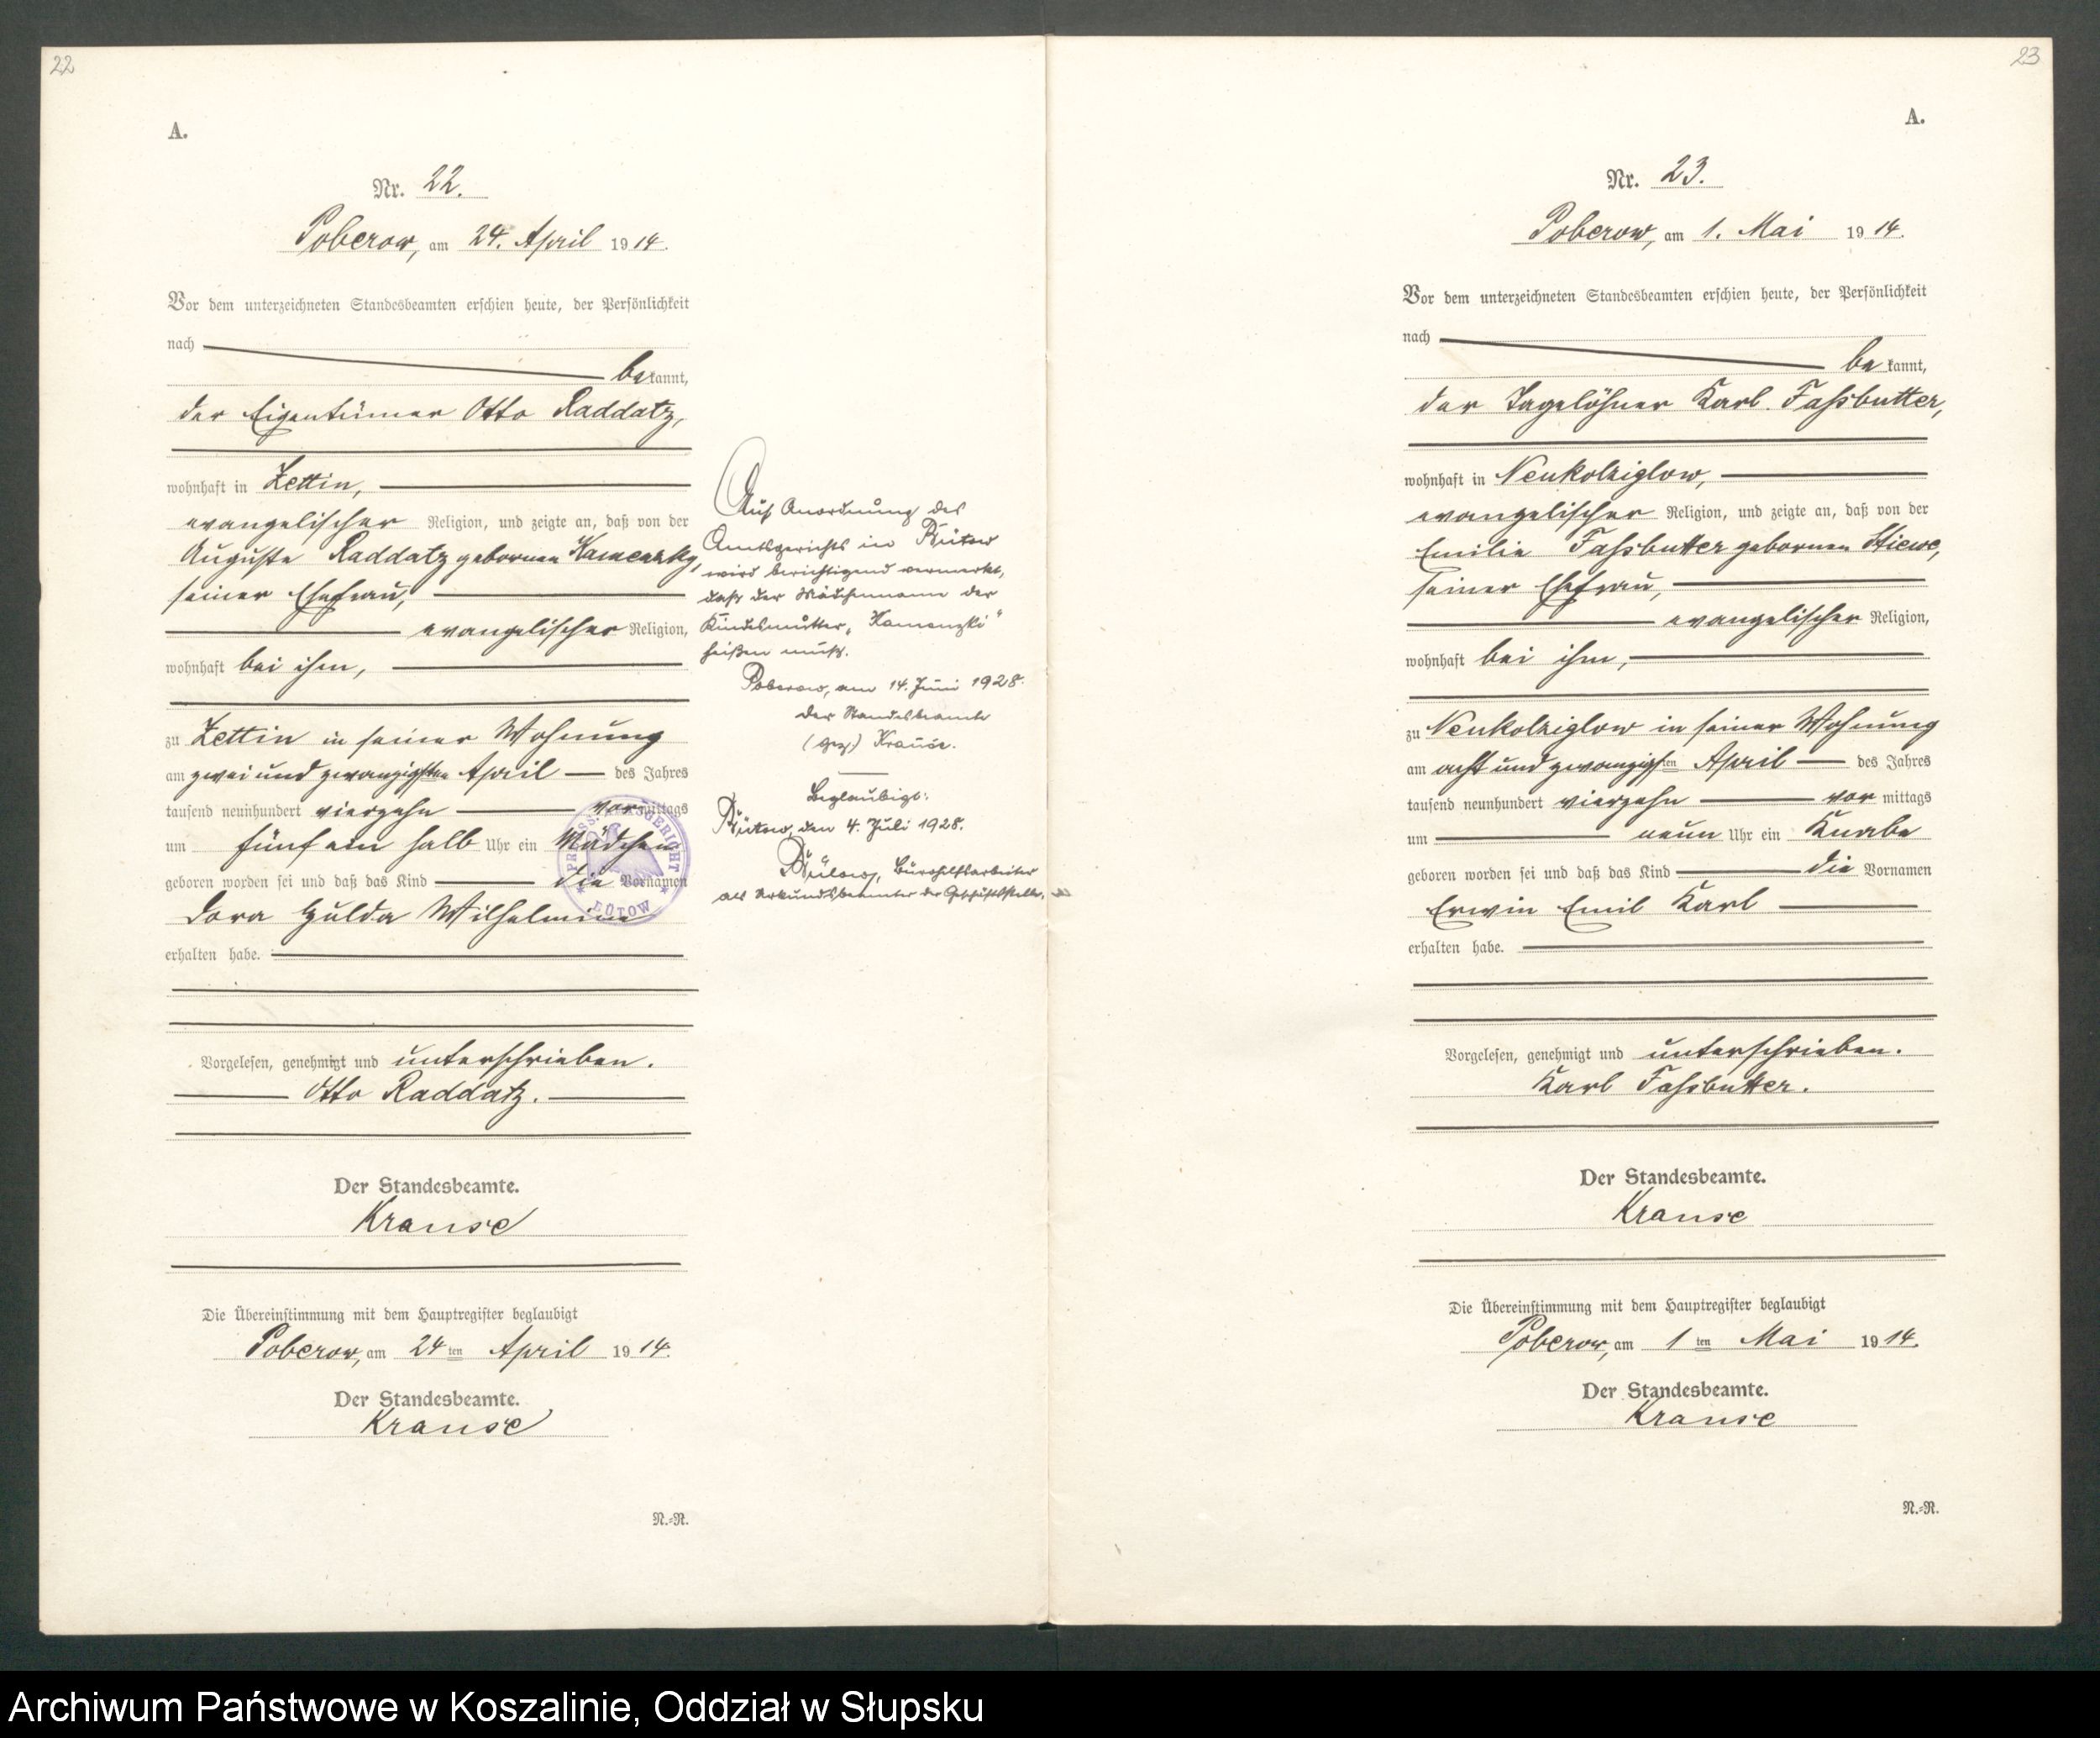 22
A.
Nr. 22.
Poberow, am 24. April 1914.
Vor dem unterzeichneten Standesbeamten erschien heute, der Persönlichkeit
nach
bekannt,
der Eigentümer Otto Raddatz,
wohnhaft in Zettin,
evangelischer Religion, und zeigte an, daß von der
Auguste Raddatz gebornen
seiner Ehefrau,
evangelischer Religion,
wohnhaft bei ihm,
zu Zettin in seiner Wohnung
am zwei und zwanzigsten April des Jahres
tausend neunhundert vierzehn vormittags
um fünf ein halb Uhr ein Mädchen
geboren worden sei und daß das Kind die Vornamen
Dora Hulda Wilhelmine
erhalten habe.
Vorgelesen, genehmigt und unterschrieben.
Otto Raddatz.
Der Standesbeamte.
Krause
Die Übereinstimmung mit dem Hauptregister beglaubigt
Poberow, am 24ten April 1914.
Der Standesbeamte.
Krause
N.=R.
Auf Anordnung des
Amtsgerichts in Bütow
wird berichtigend vermerkt,
daß der Mädchenname der
Kindesmutter „Kamenzki"
heißen muß.
Poberow, am 14. Juni 1928.
Der Standesbeamte
(gez.) Krause.
Beglaubigt:
Bütow, den 4. Juli 1928.
Bülow, Bürohilfsarbeiter
als Urkundsbeamter der Geschäftsstelle.
PREUSS. AMTSGERICHT
BÜTOW
23
A.
Nr. 23.
Poberow, am 1. Mai 1914.
Vor dem unterzeichneten Standesbeamten erschien heute, der Persönlichkeit
nach
bekannt,
der Tagelöhner Karl Fassbutter,
wohnhaft in Neukolziglow,
evangelischer Religion, und zeigte an, daß von der
Emilie Fassbutter gebornen Stiewe,
seiner Ehefrau,
evangelischer Religion,
wohnhaft bei ihm,
zu Neukolziglow in seiner Wohnung
am acht und zwanzigsten April des Jahres
tausend neunhundert vierzehn vormittags
um neun Uhr ein Knabe
geboren worden sei und daß das Kind die Vornamen
Erwin Emil Karl
erhalten habe.
Vorgelesen, genehmigt und unterschrieben.
Karl Fassbutter.
Der Standesbeamte.
Krause
Die Übereinstimmung mit dem Hauptregister beglaubigt
Poberow, am 1ten Mai 1914.
Der Standesbeamte.
Krause
N.=R.
Archiwum Państwowe w Koszalinie, Oddział w Słupsku